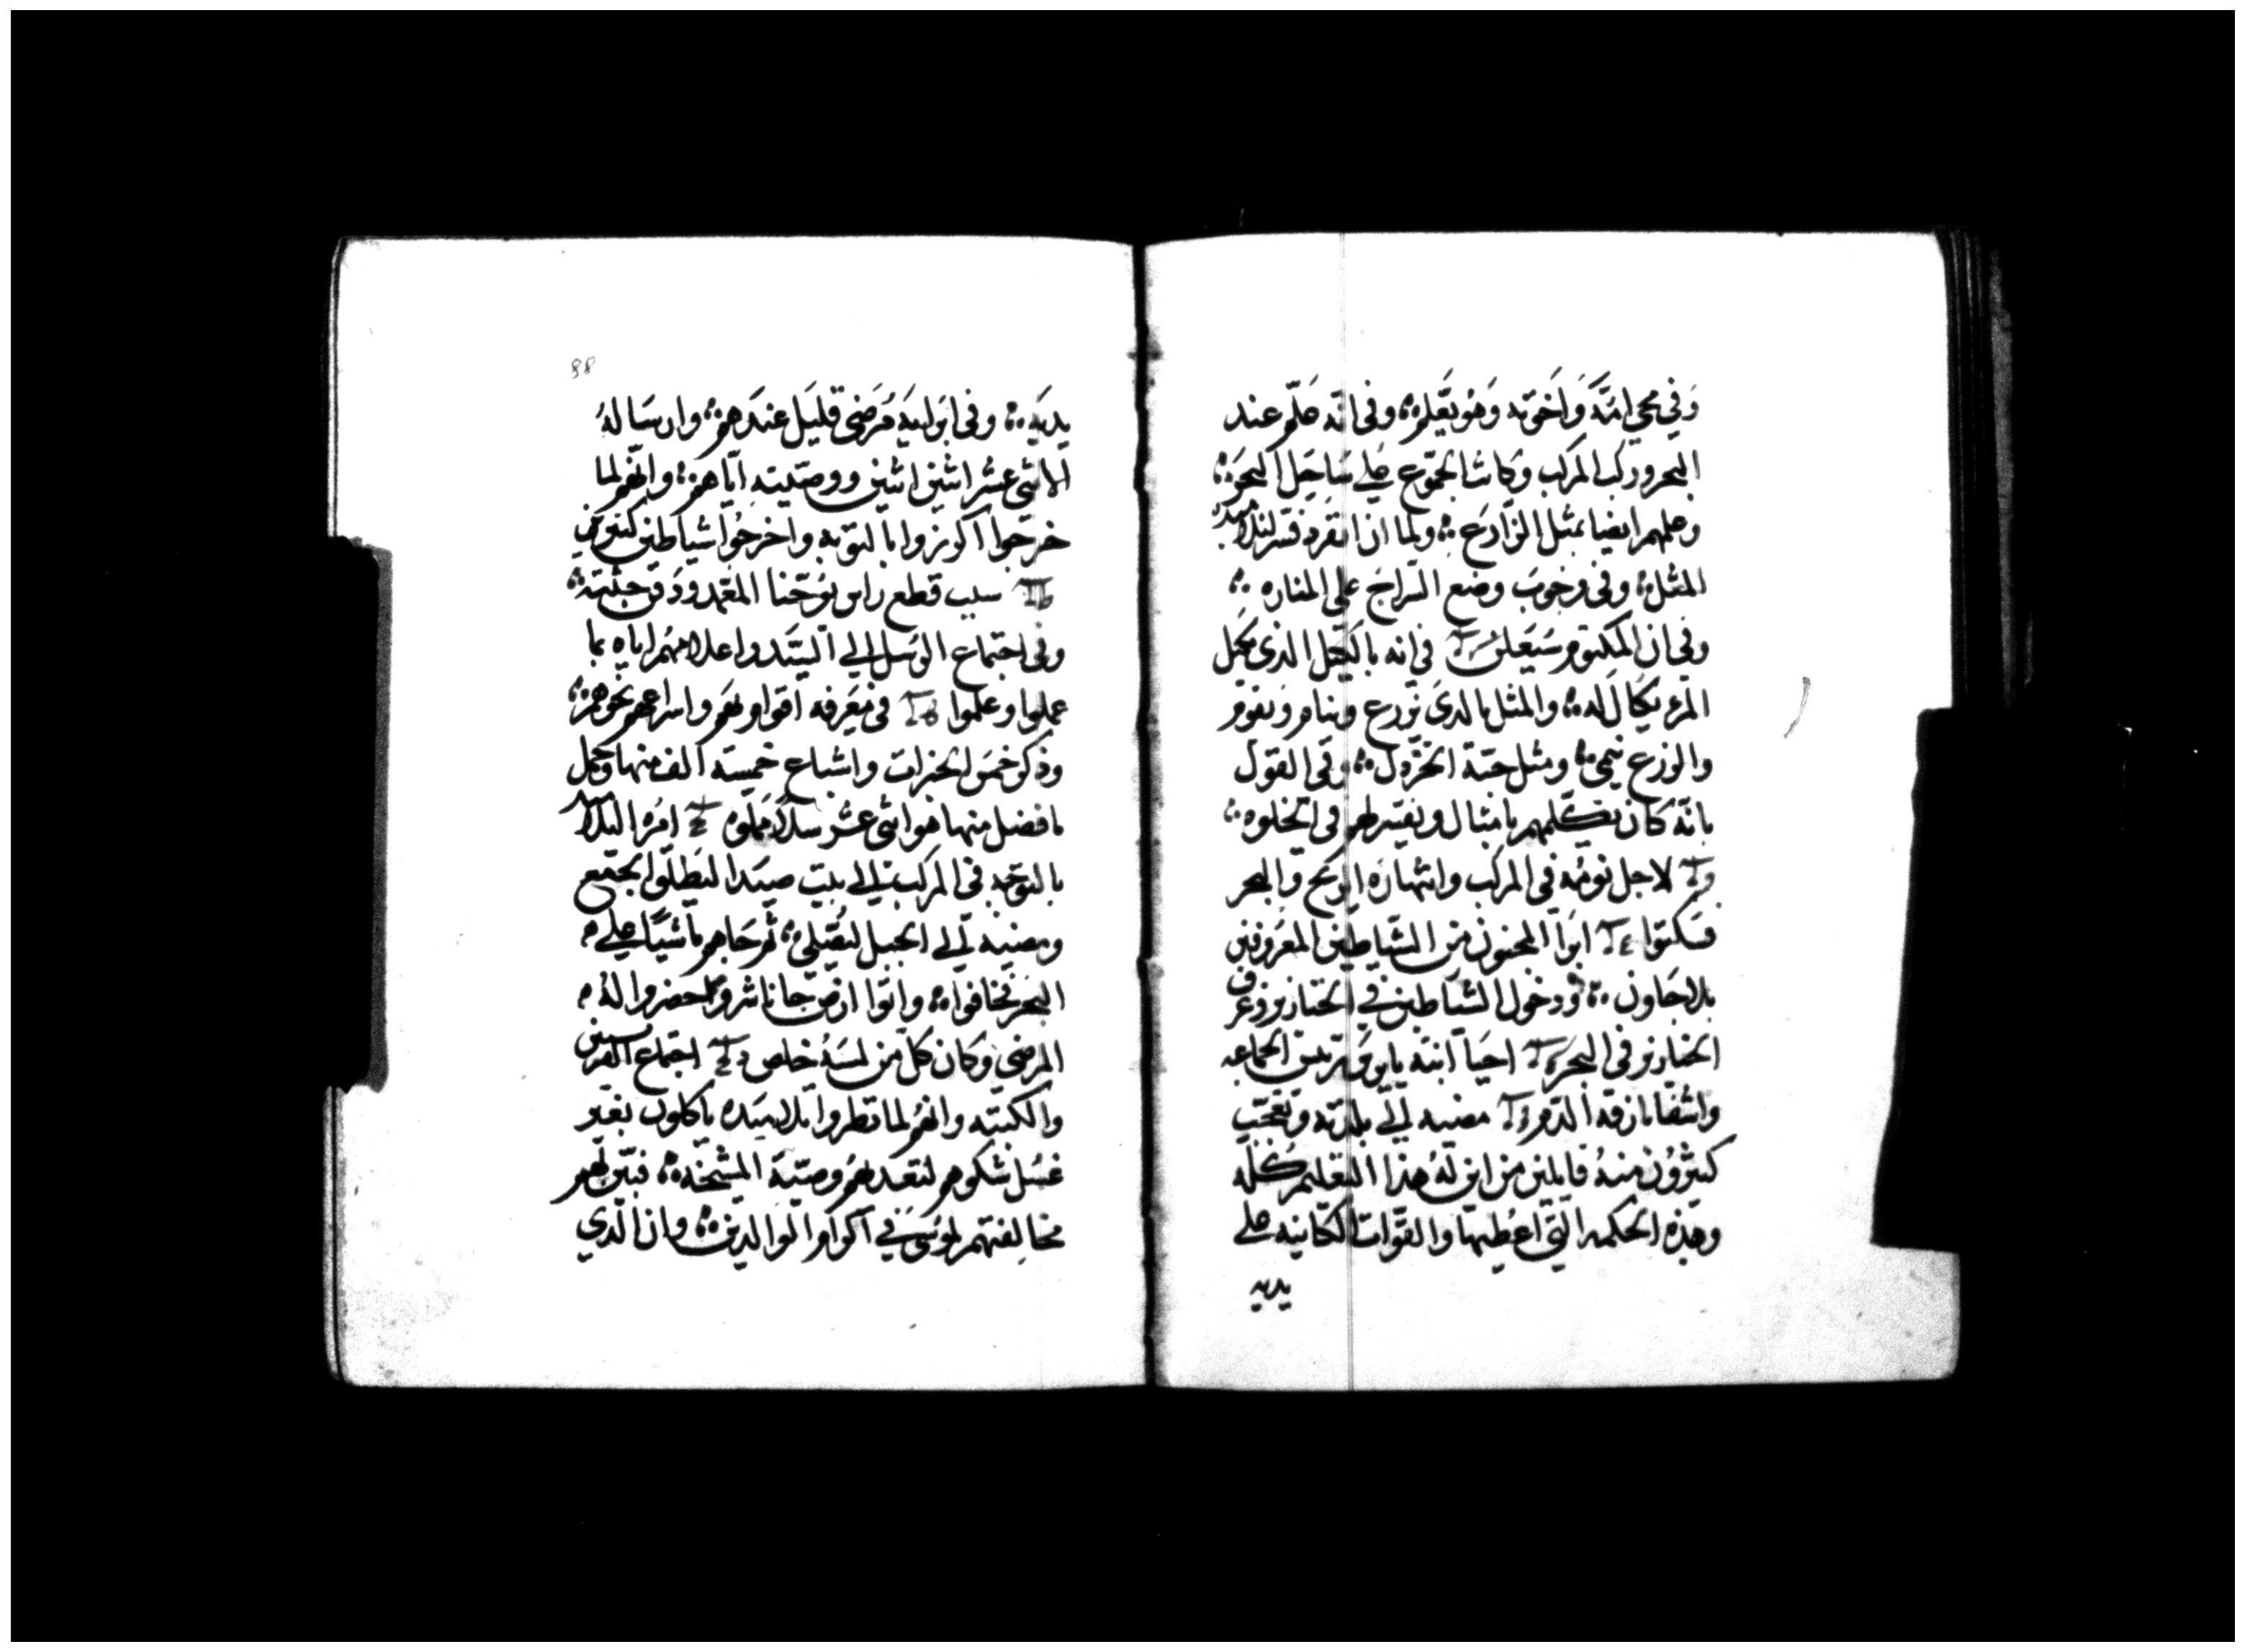 وَفي مجي امّهَ وَاخَوته وَهُو يَعَلم؞ وفى انه عَلّم عند
البحر وركب المركب وكانت الجموّع عَلي سَاحِل البحَر؞
وعلمهم ايضا بمثل الزّارَع؞ ولما ان انفرد فسّر لتلاميده
المثل؞ وفى وجُوبَ وضع السّراج على المناره؞
وفي ان المكتوم سَيَعلن في انه بالكيَل الدى يكيل
المرء يكَال لَه؞ والمثل بالدى يزرع وينام ويقوم
والزرع ينمي؞ ومثل حبّة الخرّدل؞ وفى القول
بانّه كان يكلمهم بامثال ويفسر لهم فى الخلوه؞
لاجل نومُه فى المركب وانتهارَه الريح والبحر
فسكتوا ابرَا المجنون من الشياطين المعرُوفين
بلاجَاون؞ ودخول الشياطين في الخنازير وغرق
الخنازير فى البحر احيَا ابنة يايروَس رييس الجماعه
واشفا نازفة الدم مضيه الي بلدته وتعجّب
كثيرُون منهُ قايلين من اين لهُ هذا التعليم كلّه
وهذه الحكمه التي اعُطيها والقوّات الكاينه علي
يديه
88
يديَه؞ وفى ابرايه مَرَضى قليَل عندَهم؞ وارسَاله
الاثنى عشر اثنين اثنين ووصيّته ايّاهم؞ وانّهم لما
خرجَوا اكرزوا بالتوبه واخرجُوا شياطين كثيرين
سبب قطع راس يوُحنا المعَمدان ودَفن جثته؞
وفى اجتماع الرسُل الي السّيّد واعلامهُم اياه بما
عملوا وعلموا فى معَرفه اقوام لهم واسراعهم نحوهم؞
وذكر خمسَ الخبزات واشباع خمسة الف منها وحمل
ما فضل منها هو اثنى عشر سلاً مملوه امره التلاميد
بالتوجّه فى المركب الي بيت صيَدا ليطلق الجَمع
ومضيه الي الجبل ليُصَلي؞ ثم جَاهم ماشيًا علي
البحَر فخافوا؞ واتوا ارض جاناشر واحضروا لهُ
المرضى وكان كل من لمسَهُ خلص اجتماع الفريسين
والكتبه وانهُم لما نظروا تلاميَده ياكلون بغير
غسُل شكوهم لتعَديهُم وصيّة المشيخه؞ فبيّن لهُم
مخالفتهم لموُسَى في اكرَام الوالدين؞ وان الذي